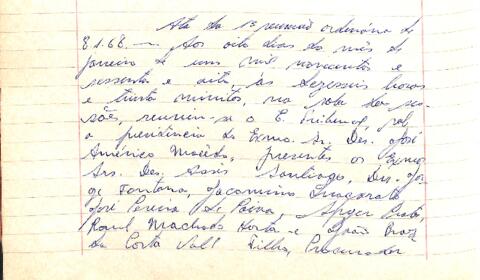 Ata da 1ª reunião ordinária de
8.1.68. — Aos oito dias do mês de
janeiro de um mil novecentos e
sessenta e oito, às dezesseis horas
e trinta minutos, na sala das ses-
sões, reuniu-se o E. Tribunal, sob
a presidência do Exmo. Sr. Des. José
Américo Macêdo, presentes os Exmos.
Srs. Des. Assis Santiago, Drs. Jor-
ge Fontana, Jacomino
José Pereira de Paiva,
Raul Machado Horta e João Braz
da Costa Val Filho, Procurador